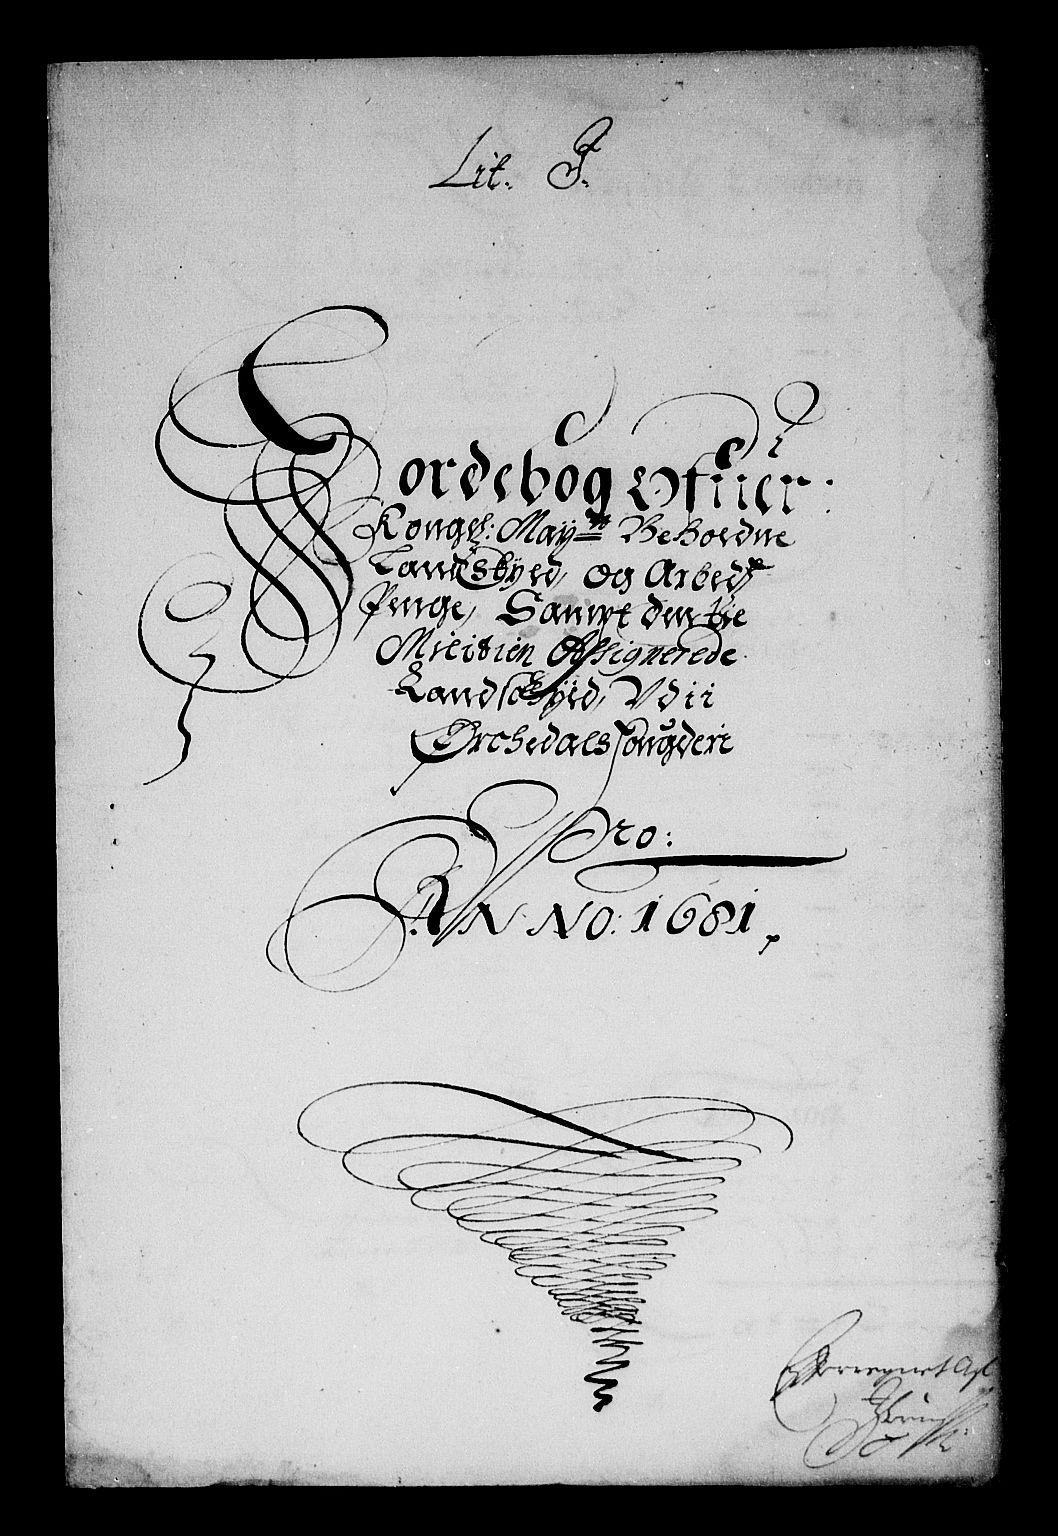 Lit. J.
Jordebog Offuer
Kongel: Maytz Beholdne
Landskyld, og Arbeds
Penge, Sampt den til
Militien Assignerede
Landskyld, Vdii
Orchedals fougderie
Pro:
ANNO: 1681